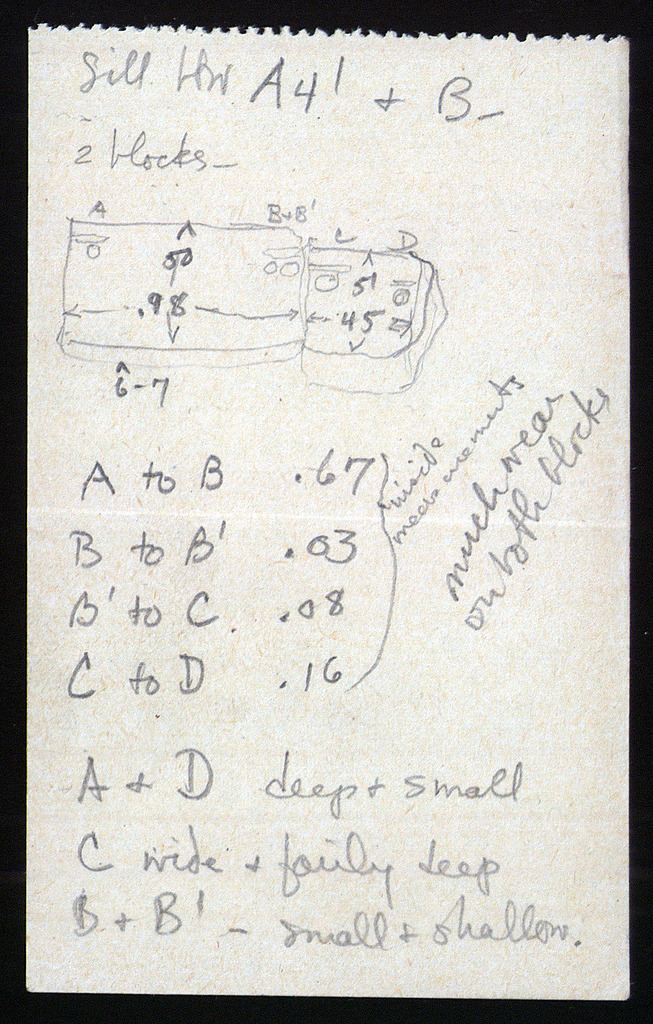 Sill btw A4' + B-
2 blocks-
A B+B' C D
50 51
.98 45
6-7
A to B .67
B to B' .03
B' to C. .08
C to D .16
inside
measurements
much wear
on both blocks
A + D deep + small
C wide + fairly deep
B + B' - small + shallow.